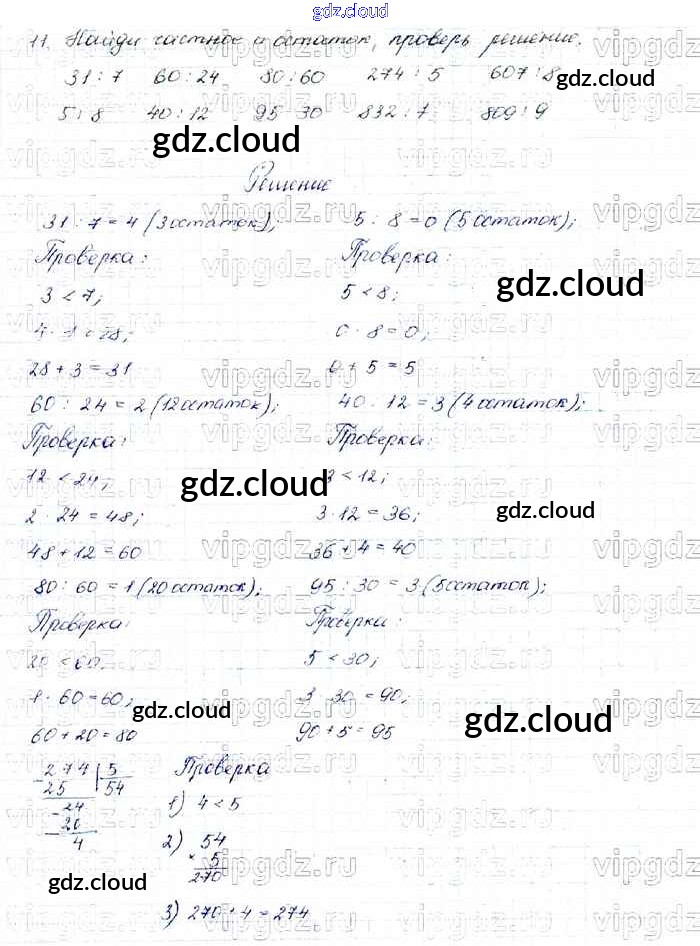 gdz.cloud
11. Найди частное и остаток, проверь решение.
31 : 7 60 : 24 80 : 60 274 : 5 607 : 8
gdz.cloud
5 : 8 40 : 12 95 30 832 : 7 809 : 9
gdz.cloud gdz.cloud
Решение
31 : 7 = 4 (3 остаток); 5 : 8 = 0 (5 остаток);
Проверка: Проверка:
3 < 7; 5 < 8;
gdz.cloud
= 28; 0 · 8 = 0;
28 + 3 = 31 0 + 5 = 5
60 : 24 = 2 (12 остаток); 40 : 12 = 3 (4 остаток);
Проверка: Проверка:
12 < 24; < 12;
gdz.cloud
2 · 24 = 48; 3 · 12 = 36;
gdz.cloud
48 + 12 = 60 36 + 4 = 40
80 : 60 = 1 (20 остаток); 95 : 30 = 3 (5 остаток);
Проверка: Проверка:
20 < 60; 5 < 30;
1 · 60 = 60; 3 · 30 = 90;
gdz.cloud gdz.cloud
60 + 20 = 80 90 + 5 = 95
274 | 5 Проверка
25 54
- 24 1) 4 < 5
20
4 2) 54
× 5
270
gdz.cloud
3) 270 + 4 = 274
gdz.cloud